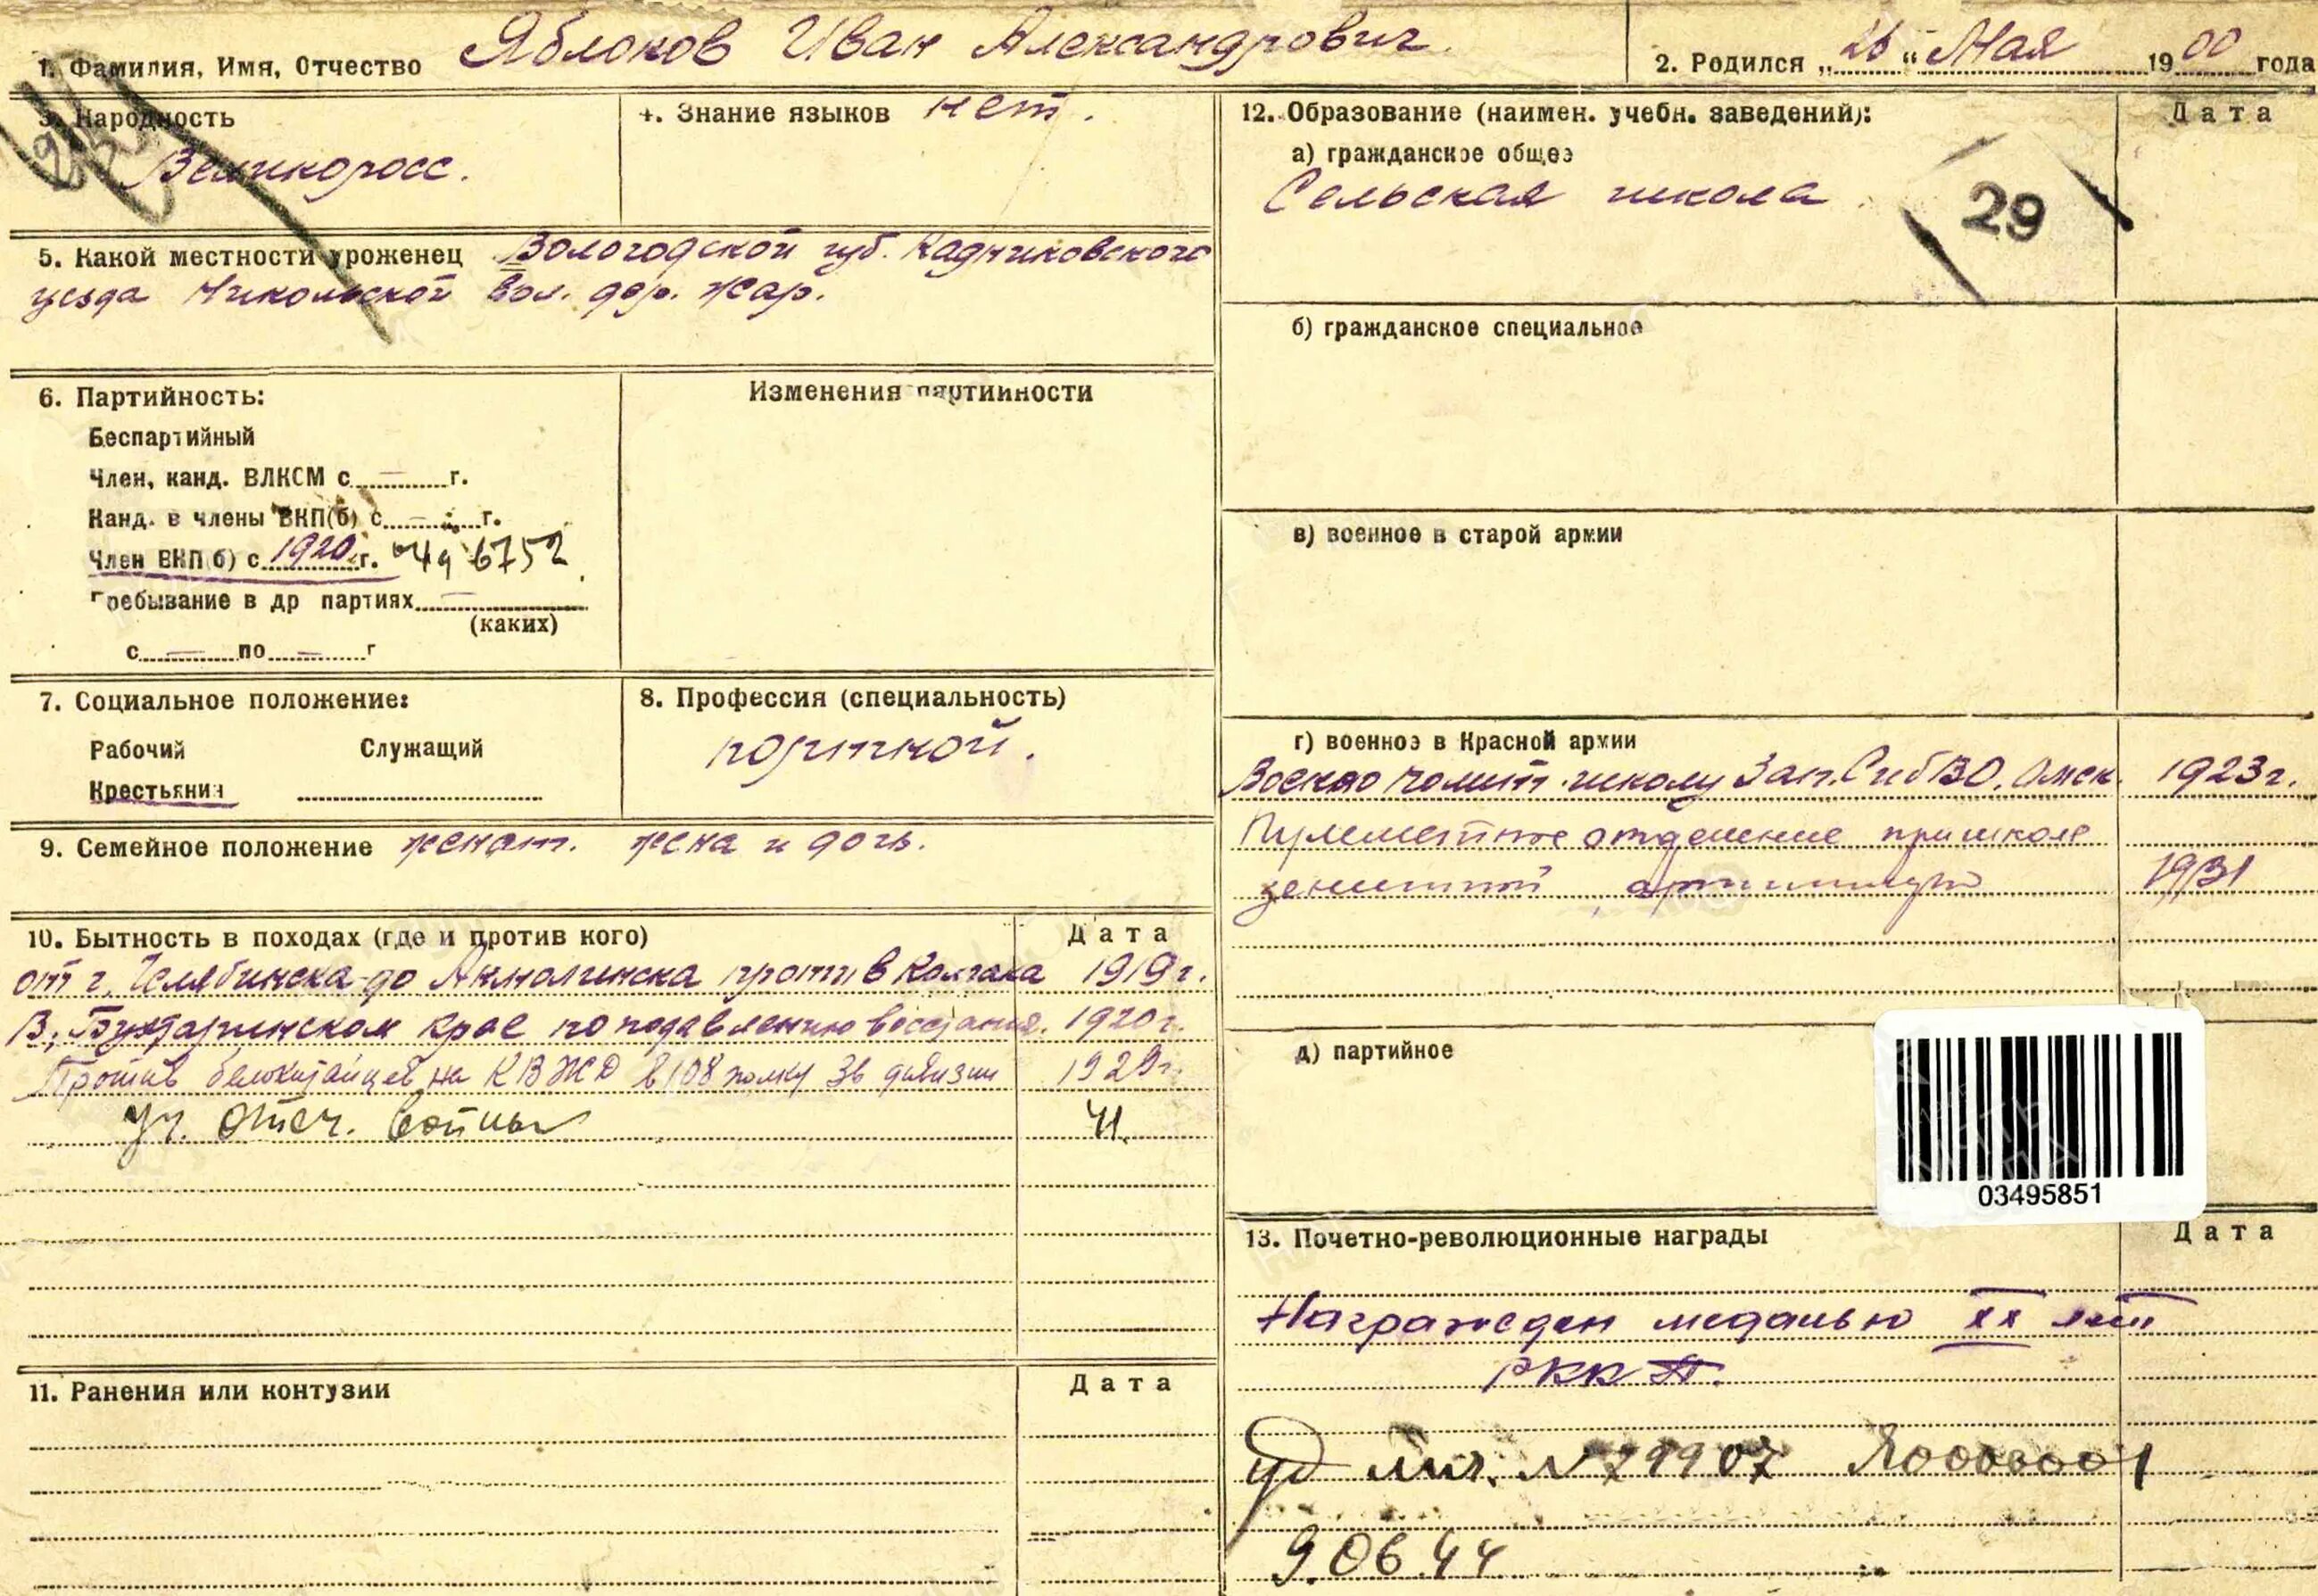 1. Фамилия, Имя, Отчество Яблоков Иван Александрович
2. Родился „26“ Мая 1900 года
3. Народность
Великоросс.
4. Знание языков нет.
5. Какой местности уроженец Вологодской губ. Кадниковского
уезда Никольской вол. дер. Жар.
6. Партийность:
Беспартийный
Член, канд. ВЛКСМ с — г.
Канд. в члены ВКП(б) с — г.
Член ВКП(б) с 1920 г. 6752
Пребывание в др партиях —
(каких)
с — по — г
Изменения партийности
7. Социальное положение:
Рабочий Служащий
Крестьянин
8. Профессия (специальность)
портной.
9. Семейное положение женат. жена и дочь.
10. Бытность в походах (где и против кого) Дата
от г. Челябинска до Акмолинска против Колчака 1919 г.
В. Бухтарминском крае по подавлению восстания. 1920 г.
Против белокитайцев на КВЖД в 108 полку 36 дивизии 1929 г.
Уч. Отеч. войны 41.
11. Ранения или контузии Дата
12. Образование (наимен. учебн. заведений): Дата
а) гражданское общее
Сельская школа
29
б) гражданское специальное
в) военное в старой армии
г) военное в Красной армии
Военно полит. школу Зап. Сиб ВО. Омск. 1923 г.
Пулеметное отделение при школе
зенитной артиллерии 1931
д) партийное
03495851
13. Почетно-революционные награды Дата
Награжден медалью XX лет
РККА.
уд лич. N
9.06.44